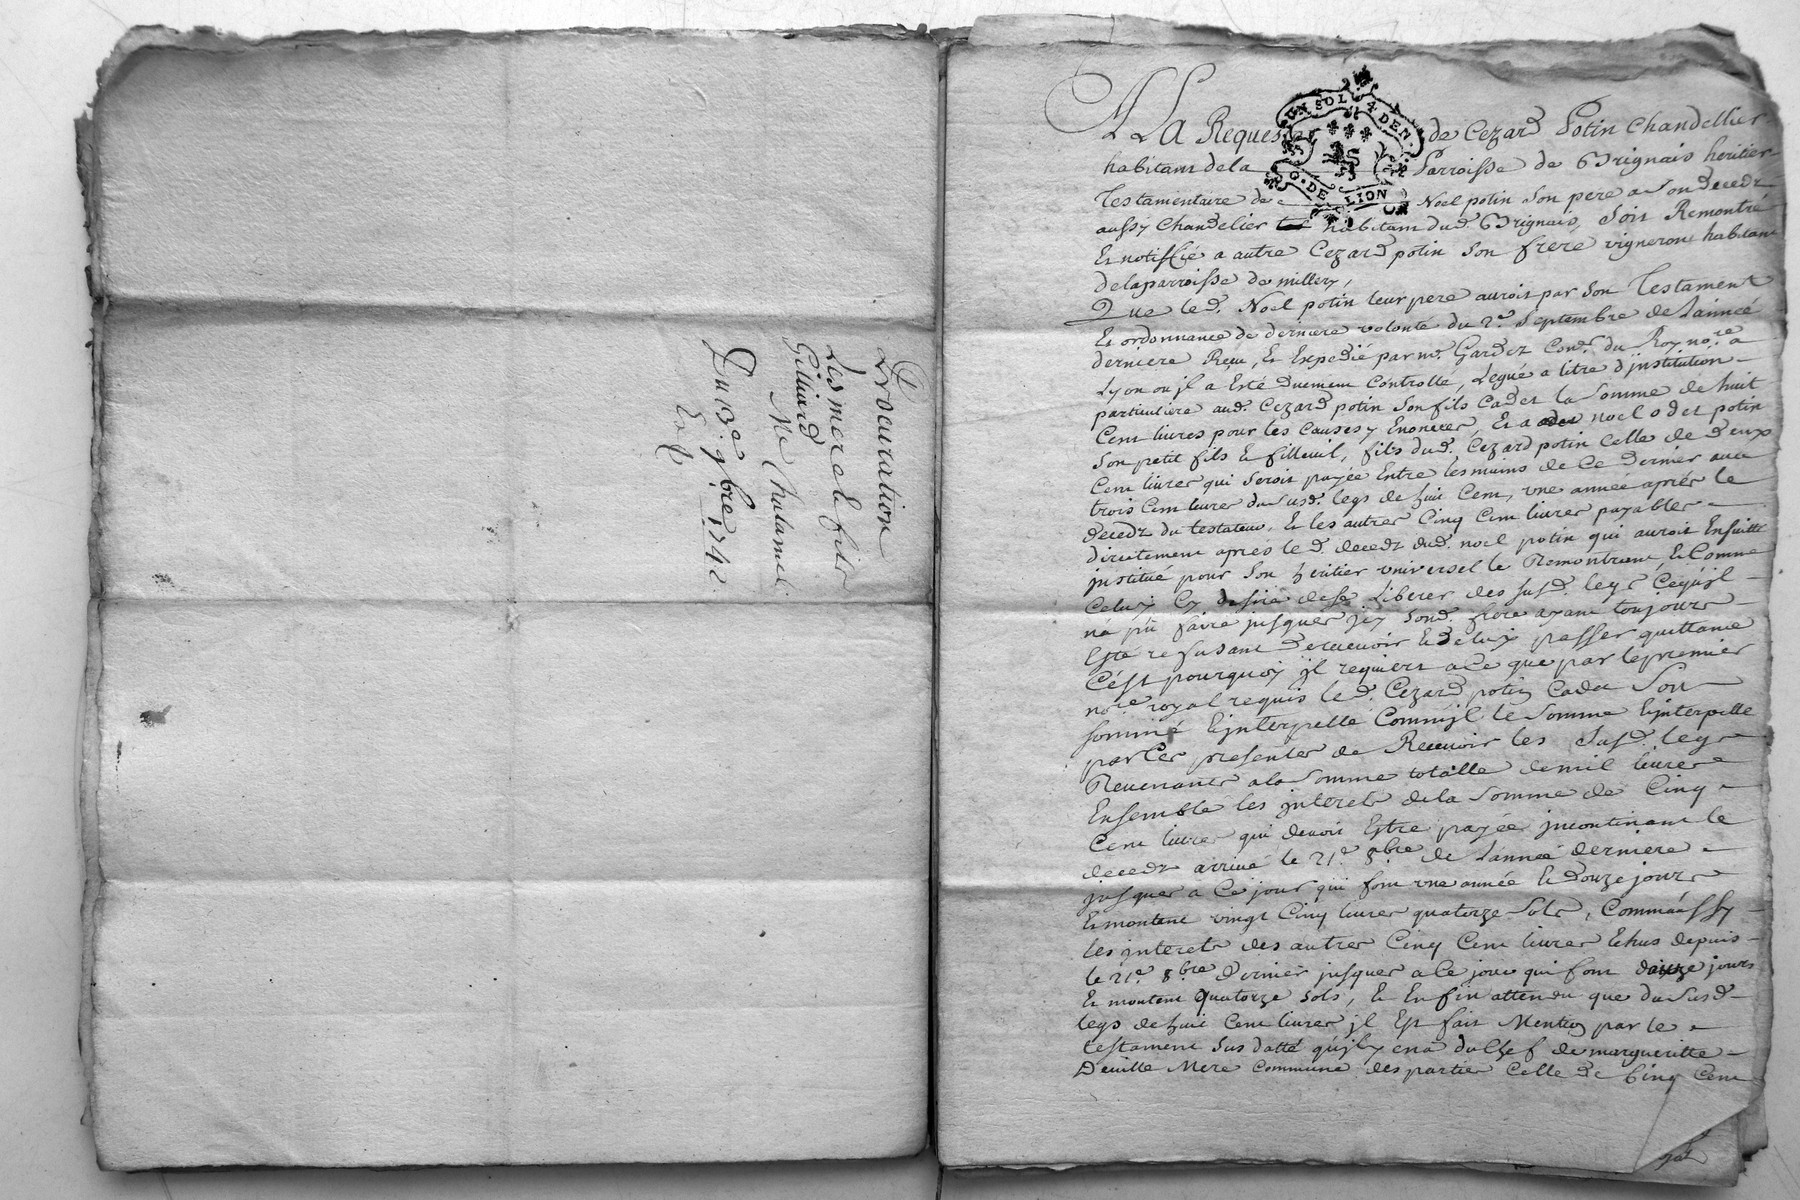 Procuration
Les mere & fils
Gilliard
Me Chalamel
Du 13e 9bre 1742
Exp
UN SOL 4 DEN.
G. DE LION
A La Requeste de Cezard Potin Chandellier
habitant de la Parroisse de Brignais heritier
Testamentaire de Noel potin son pere a son decedz
aussy Chandelier habitant dud. Brignais, soit Remontré
Et notiffié a autre Cezard potin son frere vigneront habitant
de la parroisse de millery,
Que led. Noel potin leur pere auroit par son Testament
Et ordonnance de derniere volonté du 2e. Septembre de L'année
derniere Reçu, Et Expedié par me. Gardez Conr. du Roy nore. a
Lyon ou jl a Esté Duement Controllé, Legué a titre d'jnstitution
particuliere aud. Cezard potin son fils Cadet la somme de huit
Cent livres pour les Causes y Enoncées Et a noel odet potin
son petit fils & filleuil, fils dud. Cezard potin Celle de deux
Cent livres qui seroit payée Entre les mains de Ce Dernier avec
trois Cent livres du susd. legs de huit Cent, une année aprés le
decedz du testateur, Et les autres Cinq Cent livres payables
directement aprés le d. decedz dud. noel potin qui auroit Ensuitte
jnstitué pour son heritier universel le Remontrant, & Comme
Celuy Cy desire de se Liberer des susd. legs Ce qu'jl
na pû faire jusques jcy sond. frere ayant toujours
Esté refusant de recevoir & de luy passer quittance
C'est pourquoy jl requiert a Ce que par le premier
nore royal requis le d. Cezard potin Cadet soit
sommé & jnterpellé Comm'jl le somme & jnterpelle
par Ces presentes de Recevoir les susd. legs
Revenants a la somme totalle de mil livres
Ensemble les jnterets de la somme de Cinq
Cent livres qui devoit Estre payée jncontinant le
decedz arrivé le 21e. 8bre. de L'année derniere
jusques a Ce jour qui font une année & douze jours
Et montent vingt Cinq livres quatorze sols, Comm'aussy
les jnterets des autres Cinq Cent livres Echus depuis
le 21e. 8bre Dernier jusques a Ce jour qui font douze jours
Et montent quatorze sols, & Enfin attendu que du susd.
legs de huit Cent livres jl Est fait Mention par le
testament sus datté qu'jl y en a du Chef de margueritte
Deville Mere Commune des parties Celle de Cinq Cent